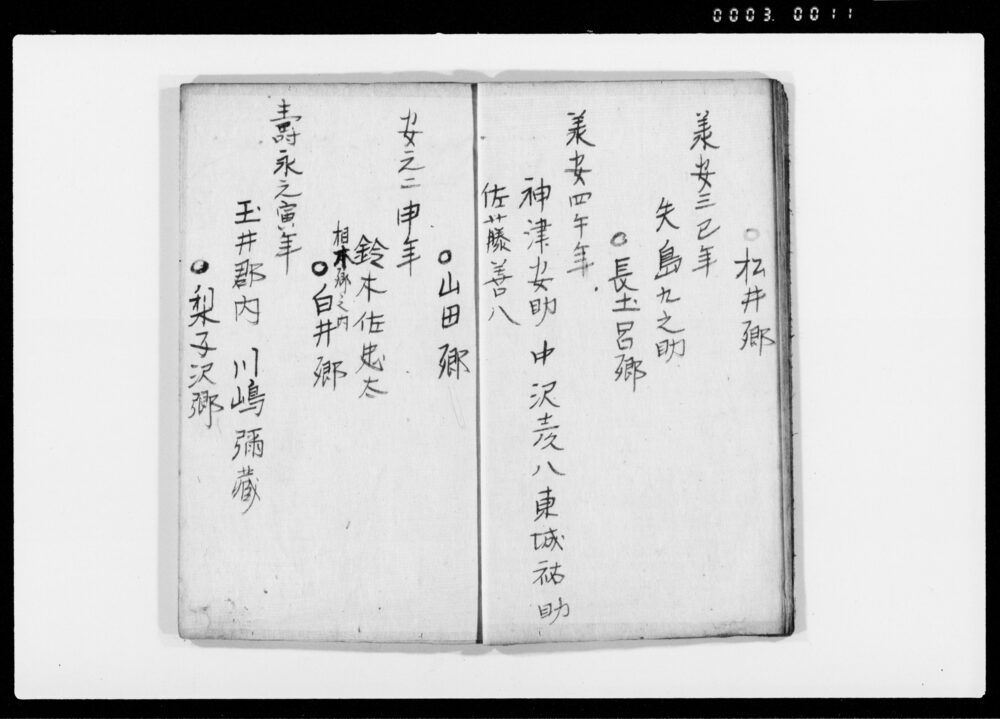 0003. 0011
松井郷
美安三巳年
矢島九之助
長土呂郷
美安四午年
神津安助 中沢麦八 東城祐助
佐藤善八
山田郷
安元二申年
鈴木佐忠太
相木郷之内
白井郷
壽永元寅年
玉井郡内 川嶋彌藏
梨子沢郷